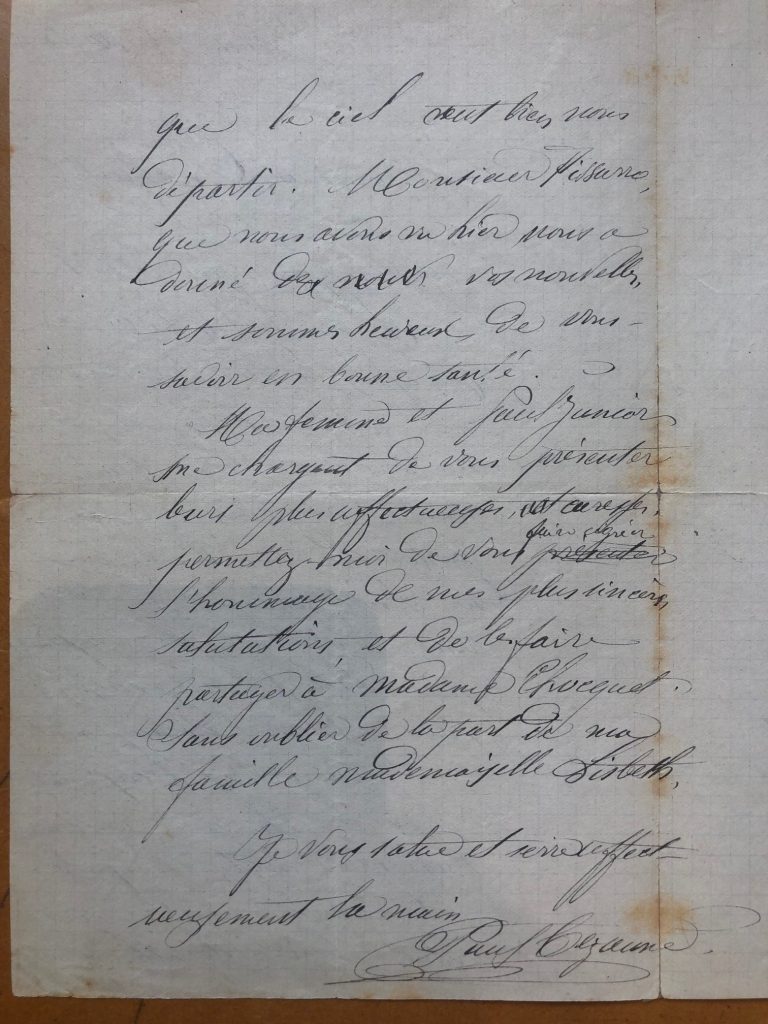 que le ciel veut bien nous
départir. Monsieur Pissarro,
que nous avons vu hier nous a
donné de vos nouvelles,
et sommes heureux de vous
savoir en bonne santé.
Ma femme et Paul Junior
me chargent de vous présenter
leurs plus affectueuses caresses,
faire agréer
permettez-moi de vous présenter
l'hommage de mes plus sincères
salutations, et de le faire
partager à madame Chocquet.
Sans oublier de la part de ma
famille mademoiselle Lisbeth,
Je vous salue et serre affect-
ueusement la main
Paul Cezanne.